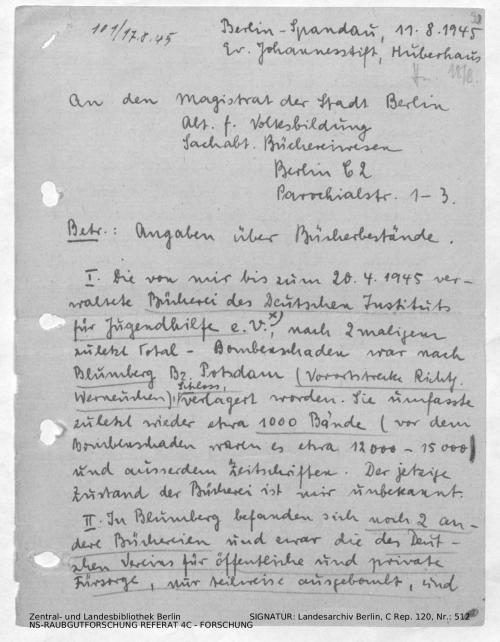 101/17.8.45
Berlin-Spandau, 11.8.1945
Ev. Johannesstift, Huberhaus
18/8.
An den Magistrat der Stadt Berlin
Abt. f. Volksbildung
Sachabt. Büchereiwesen
Berlin C2
Parochialstr. 1-3.
Betr.: Angaben über Bücherbestände.
I. Die von mir bis zum 20.4.1945 ver-
waltete Bücherei des Deutschen Instituts
für Jugendhilfe e.V.,x) nach 2maligem
zuletzt Total-Bombenschaden war nach
Blumberg Bz. Potsdam (Vorortstrecke Richtg.
Schloss,
Werneuchen) verlagert worden. Sie umfasste
zuletzt wieder etwa 1000 Bände (vor dem
Bombenschaden waren es etwa 12000-15000)
und ausserdem Zeitschriften. Der jetzige
Zustand der Bücherei ist mir unbekannt.
II. In Blumberg befanden sich noch 2 an-
dere Büchereien und zwar die des Deut-
schen Vereins für öffentliche und private
Fürsorge, nur teilweise ausgebombt, und
Zentral- und Landesbibliothek Berlin
NS-RAUBGUTFORSCHUNG REFERAT 4C - FORSCHUNG
SIGNATUR: Landesarchiv Berlin, C Rep. 120, Nr.: 512